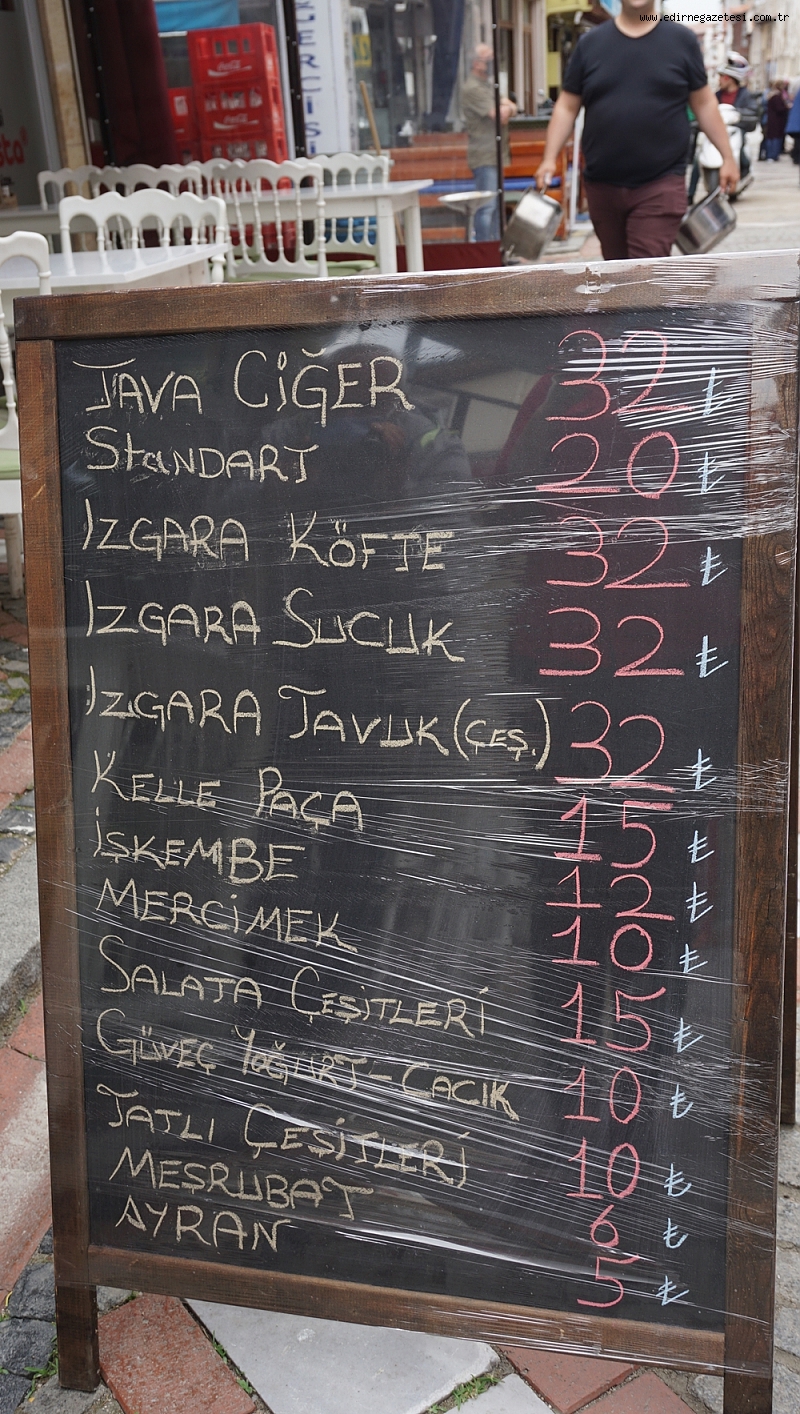 www.edirnegazetesi.com.tr
Coca-Cola
CİĞERCİSİ
TAVA CİĞER 32 ₺
StaNDART 20 ₺
IZGARA KÖFTE 32 ₺
IZGARA SUCUK 32 ₺
IZGARA TAVUK (ÇEŞ.) 32 ₺
KELLE PAÇA 15 ₺
İŞKEMBE 12 ₺
MERCİMEK 10 ₺
SALATA ÇEŞİTLERİ 15 ₺
GÜVEÇ YOĞURT-CACIK 10 ₺
TATLI ÇEŞİTLERİ 10 ₺
MEŞRUBAT 6 ₺
AYRAN 5 ₺